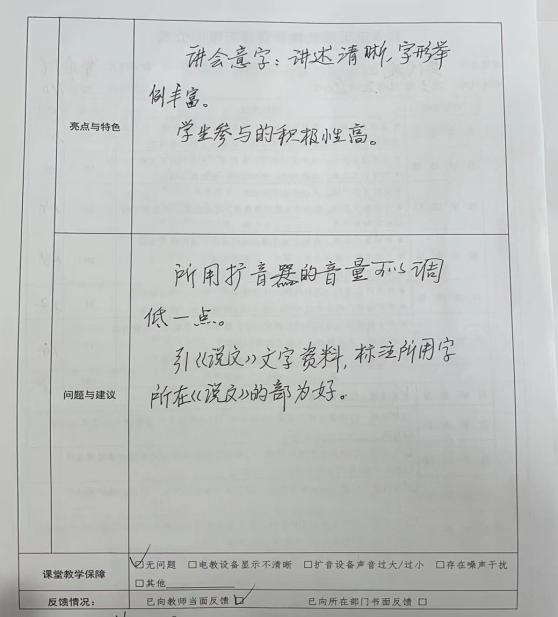 讲会意字：讲述清晰，字形举
例丰富。
亮点与特色
学生参与的积极性高。
所用扩音器的音量可以调
低一点。
引《说文》文字资料，标注所用字
问题与建议
所在《说文》的部为好。
课堂教学保障
☑无问题 □电教设备显示不清晰 □扩音设备声音过大/过小 □存在噪声干扰
□其他
反馈情况： 已向教师当面反馈☑ 已向所在部门书面反馈□